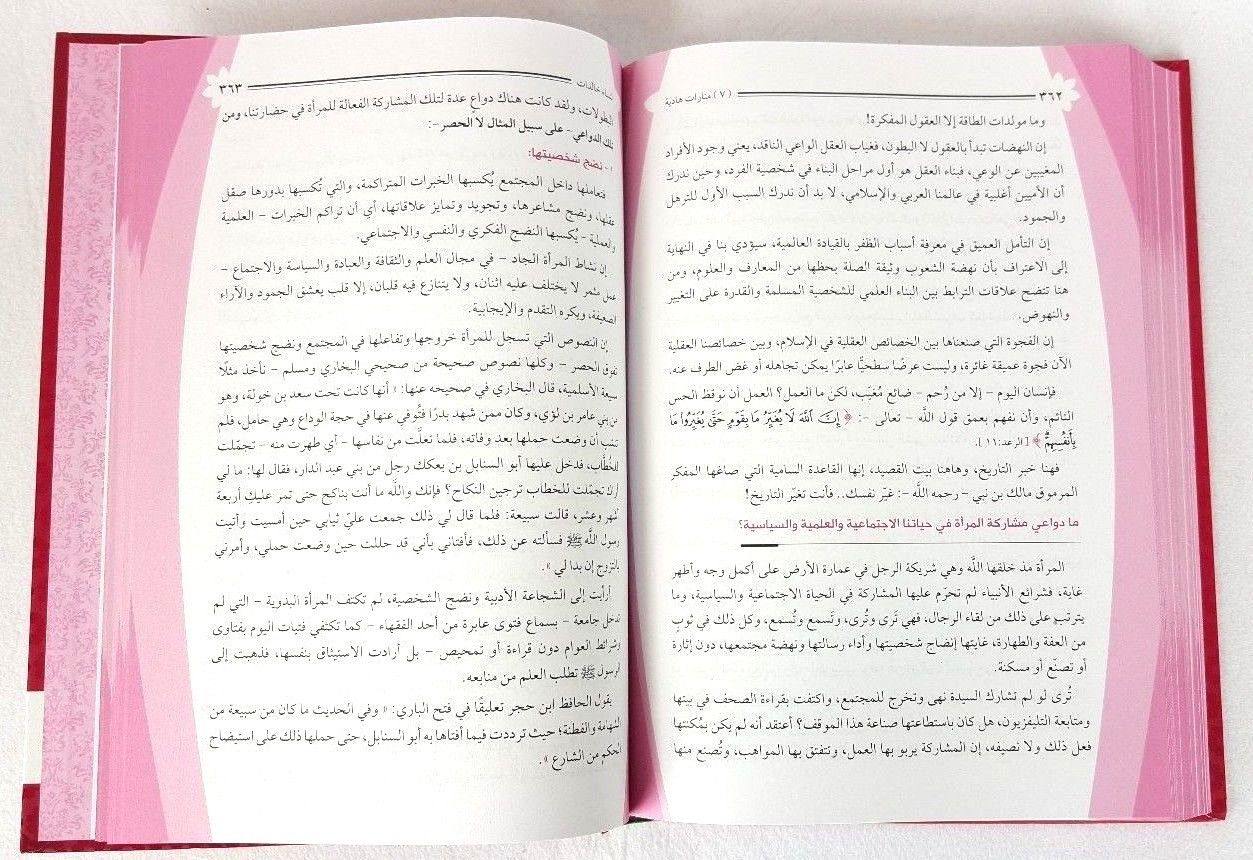 ٣٦٢ (٧) منارات هادية
وما مولدات الطاقة إلا العقول المفكرة!
إن النهضات تبدأ بالعقول لا البطون، فغياب العقل الواعي الناقد، يعني وجود الأفراد
المغيبين عن الوعي، فبناء العقل هو أول مراحل البناء في شخصية الفرد، وحين ندرك
أن الأميين أغلبية في عالمنا العربي والإسلامي، لا بد أن ندرك السبب الأول للترهل
والجمود.
إن التأمل العميق في معرفة أسباب الظفر بالقيادة العالمية، سيؤدي بنا في النهاية
إلى الاعتراف بأن نهضة الشعوب وثيقة الصلة بحظها من المعارف والعلوم، ومن
هنا تتضح علاقات الترابط بين البناء العلمي للشخصية المسلمة والقدرة على التغيير
والنهوض.
إن الفجوة التي صنعناها بين الخصائص العقلية في الإسلام، وبين خصائصنا العقلية
الآن فجوة عميقة غائرة، وليست عرضًا سطحيًّا عابرًا يمكن تجاهله أو غض الطرف عنه.
فإنسان اليوم – إلا من رُحم – ضائع مُغيَّب، لكن ما العمل؟ العمل أن نوقظ الحس
النائم، وأن نفهم بعمق قول الله – تعالى –: ﴿ إِنَّ اللَّهَ لَا يُغَيِّرُ مَا بِقَوْمٍ حَتَّىٰ يُغَيِّرُوا مَا
بِأَنفُسِهِمْ ﴾ [الرعد:١١].
فهنا خبر التاريخ، وهاهنا بيت القصيد، إنها القاعدة السامية التي صاغها المفكر
المرموق مالك بن نبي – رحمه الله –: غيّر نفسك.. فأنت تغيّر التاريخ!
ما دواعي مشاركة المرأة في حياتنا الاجتماعية والعلمية والسياسية؟
المرأة مذ خلقها الله وهي شريكة الرجل في عمارة الأرض على أكمل وجه وأطهر
غاية، فشرائع الأنبياء لم تحرّم عليها المشاركة في الحياة الاجتماعية والسياسية، وما
يترتب على ذلك من لقاء الرجال، فهي تَرى وتُرى، وتَسمع وتُسمع، وكل ذلك في ثوبٍ
من العفة والطهارة، غايتها إنضاج شخصيتها وأداء رسالتها ونهضة مجتمعها، دون إثارة
أو تصنّع أو مسكنة.
تُرى لو لم تشارك السيدة نهى وتخرج للمجتمع، واكتفت بقراءة الصحف في بيتها
ومتابعة التليفزيون، هل كان باستطاعتها صناعة هذا الموقف؟ أعتقد أنه لم يكن يمُكنها
فعل ذلك ولا نصيفه، إن المشاركة يربو بها العمل، وتتفتق بها المواهب، وتُصنع منها
خالدات ٣٦٣
البطولات، ولقد كانت هناك دواعٍ عدة لتلك المشاركة الفعالة للمرأة في حضارتنا، ومن
تلك الدواعي – على سبيل المثال لا الحصر –:
١ - نضج شخصيتها:
فتعاملها داخل المجتمع يُكسبها الخبرات المتراكمة، والتي تُكسبها بدورها صقل
عقلها، ونضج مشاعرها، وتجويد وتمايز علاقاتها، أي أن تراكم الخبرات – العلمية
والعملية – يُكسبها النضج الفكري والنفسي والاجتماعي.
إن نشاط المرأة الجاد – في مجال العلم والثقافة والعبادة والسياسة والاجتماع –
عمل مثمر لا يختلف عليه اثنان، ولا يتنازع فيه قلبان، إلا قلب يعشق الجمود والآراء
الضعيفة، ويكره التقدم والإيجابية.
إن النصوص التي تسجل للمرأة خروجها وتفاعلها في المجتمع ونضج شخصيتها
تفوق الحصر – وكلها نصوص صحيحة من صحيحي البخاري ومسلم – نأخذ مثلًا
سبيعة الأسلمية، قال البخاري في صحيحه عنها: « أنها كانت تحت سعد بن خولة، وهو
من بني عامر بن لؤي، وكان ممن شهد بدرًا فتُوفي عنها في حجة الوداع وهي حامل، فلم
تنشب أن وضعت حملها بعد وفاته، فلما تعلَّت من نفاسها – أي طهرت منه – تجمّلت
للخُطَّاب، فدخل عليها أبو السنابل بن بعكك رجل من بني عبد الدار، فقال لها: ما لي
أراك تجمّلت للخطاب ترجين النكاح؟ فإنك والله ما أنت بناكح حتى تمر عليك أربعة
أشهر وعشر، قالت سبيعة: فلما قال لي ذلك جمعت عليّ ثيابي حين أمسيت وأتيت
رسول الله ﷺ فسألته عن ذلك، فأفتاني بأني قد حللت حين وضعت حملي، وأمرني
بالتزوج إن بدا لي ».
أرأيت إلى الشجاعة الأدبية ونضج الشخصية، لم تكتف المرأة البدوية – التي لم
تدخل جامعة – بسماع فتوى عابرة من أحد الفقهاء – كما تكتفي فتيات اليوم بفتاوى
وشرائط العوام دون قراءة أو تمحيص – بل أرادت الاستيثاق بنفسها، فذهبت إلى
الرسول ﷺ تطلب العلم من منابعه.
يقول الحافظ ابن حجر تعليقًا في فتح الباري: « وفي الحديث ما كان من سبيعة من
الشهامة والفطنة؛ حيث ترددت فيما أفتاها به أبو السنابل، حتى حملها ذلك على استيضاح
الحكم من الشارع ».